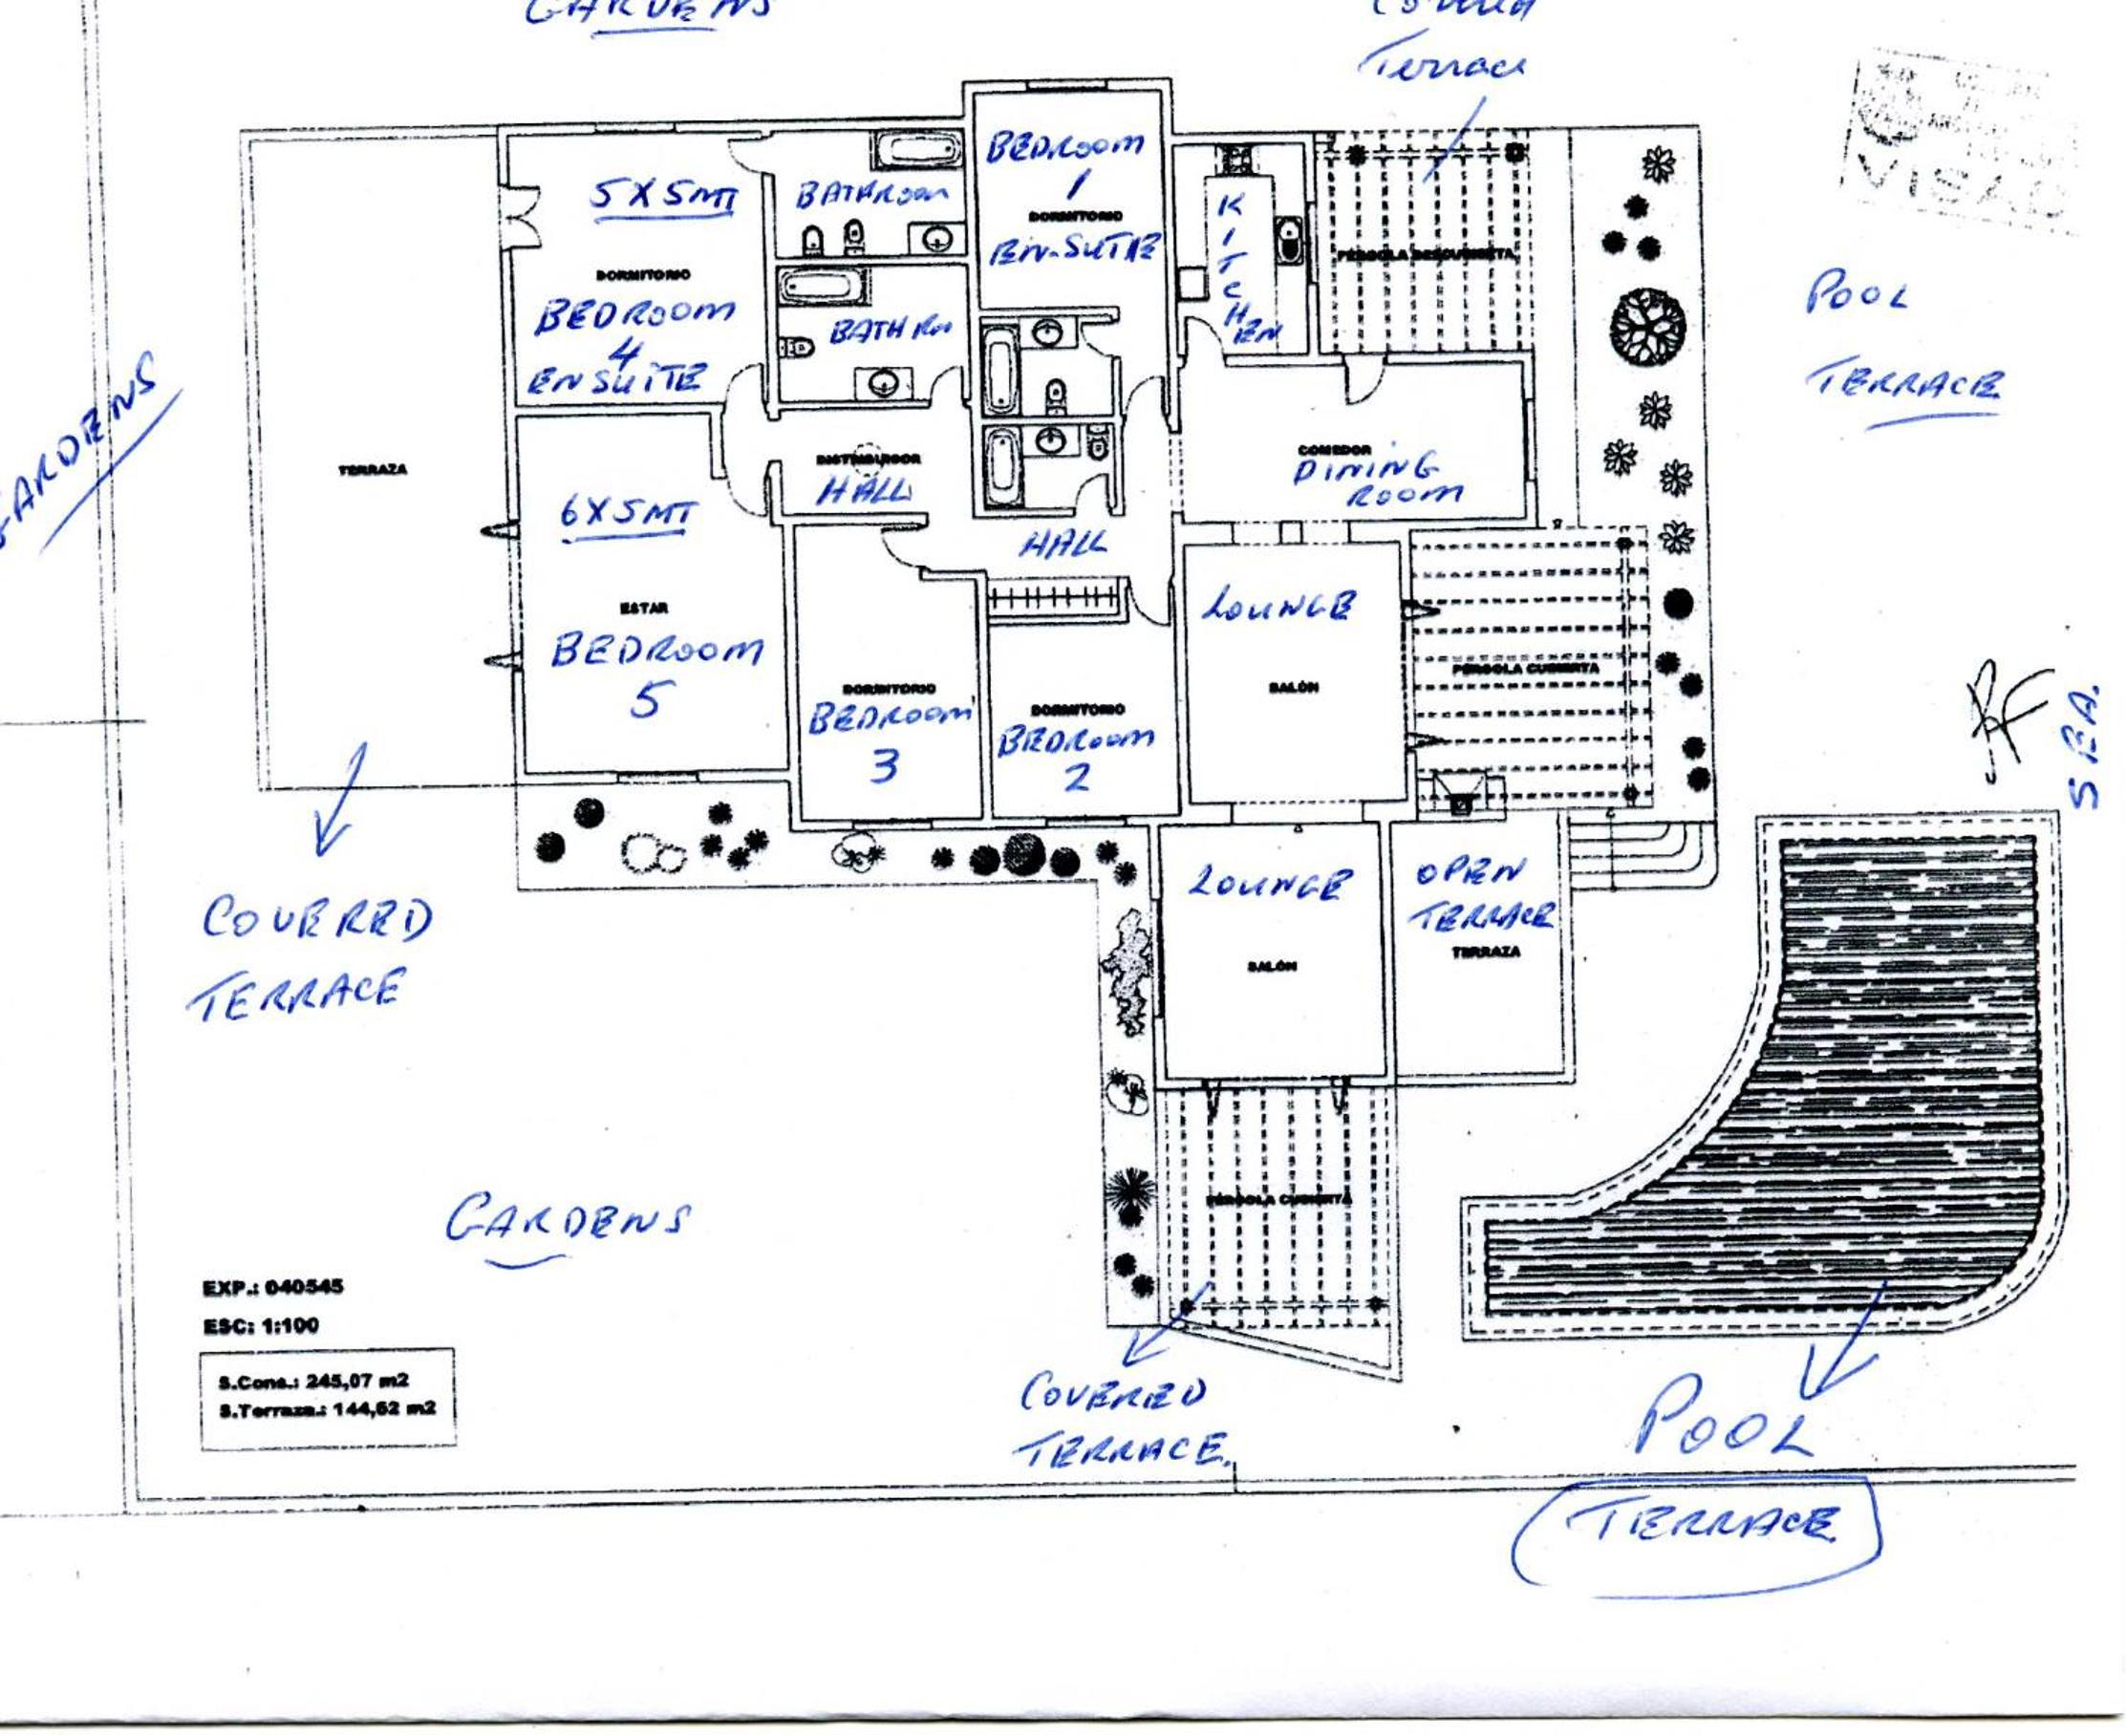 GARDENS
Covered
Terrace
VISADO
5 X 5 MT
BATHROOM
BEDROOM
1
DORMITORIO
EN-SUITE
KITCHEN
PÉRGOLA DESCUBIERTA
POOL
TERRACE
DORMITORIO
BEDROOM
4
EN SUITE
BATH RM
GARDENS
TERRAZA
DISTRIBUIDOR
HALL
COMEDOR
DINING
ROOM
6 X 5 MT
HALL
ESTAR
BEDROOM
5
LOUNGE
SALÓN
PÉRGOLA CUBIERTA
DORMITORIO
BEDROOM
3
DORMITORIO
BEDROOM
2
COVERED
TERRACE
LOUNGE
SALÓN
OPEN
TERRACE
TERRAZA
GARDENS
PÉRGOLA CUBIERTA
EXP.: 040545
ESC: 1:100
S.Cons.: 245,07 m2
S.Terraza.: 144,52 m2
COVERED
TERRACE.
POOL
TERRACE